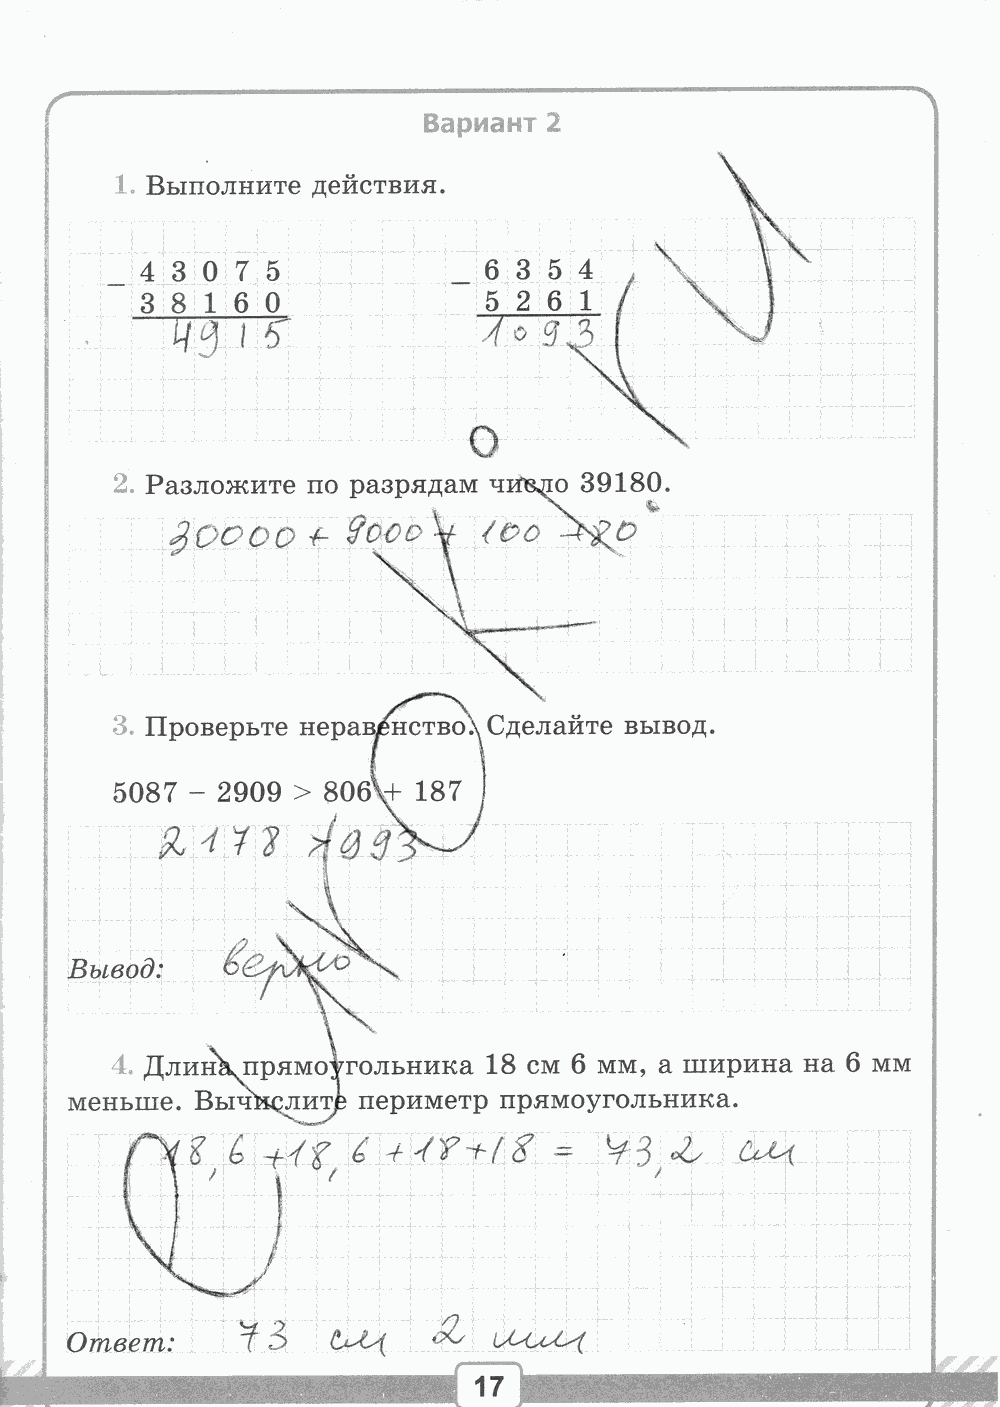 Вариант 2
1. Выполните действия.
– 4 3 0 7 5 – 6 3 5 4
3 8 1 6 0 5 2 6 1
4915 1093
2. Разложите по разрядам число 39180.
30000 + 9000 + 100 + 80
3. Проверьте неравенство. Сделайте вывод.
5087 – 2909 > 806 + 187
2178 > 993
Вывод: верно
4. Длина прямоугольника 18 см 6 мм, а ширина на 6 мм
меньше. Вычислите периметр прямоугольника.
18,6 + 18,6 + 18 + 18 = 73,2 см
Ответ: 73 см 2 мм
17